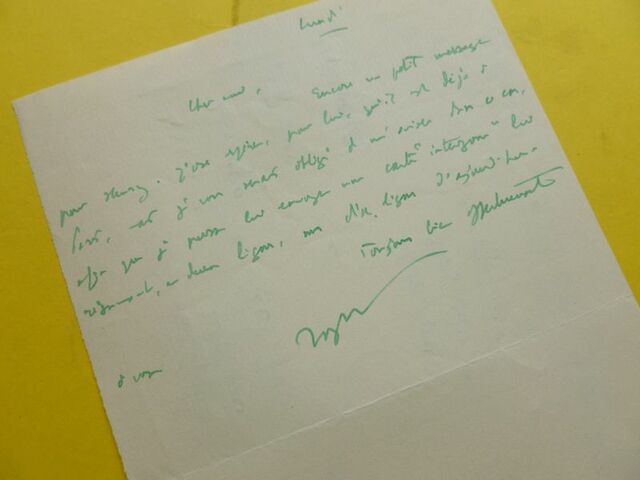 Lundi
Cher ami, Encore un petit message
pour J'ose espérer, pour lui, qu'il est déjà à
Paris, mais je vous serais obligé de m'aviser dans ce cas,
afin que je puisse lui envoyer une carte lui
résumant, en deux lignes, mes dix lignes d'aujourd'hui.
Toujours bien affectueusement
à vous